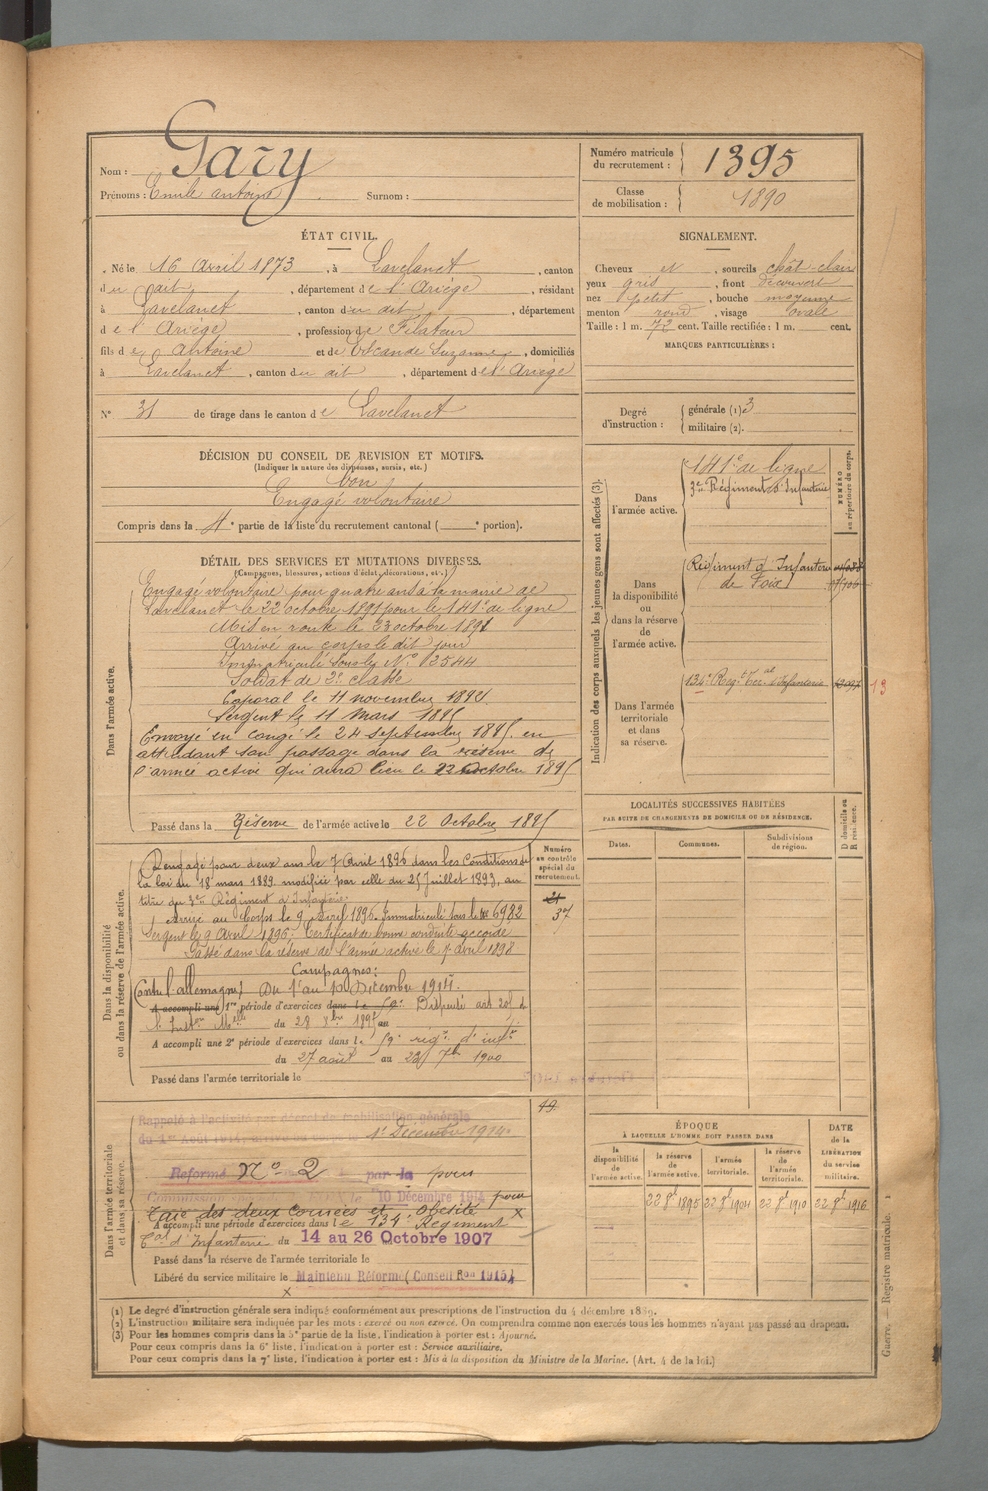 Nom : Gary
Prénoms : Emile antoine Surnom :
Numéro matricule du recrutement : 1395
Classe de mobilisation : 1890
ÉTAT CIVIL.
Né le 16 Avril 1873, à Lavelanet, canton
du dit, département de l'Ariège, résidant
à Lavelanet, canton du dit, département
de l'Ariège, profession de Fileteur
fils de Antoine et de Escande Suzanne, domiciliés
à Lavelanet, canton du dit, département de l'Ariège
N° 31 de tirage dans le canton de Lavelanet
SIGNALEMENT.
Cheveux et, sourcils chât-clair
yeux gris, front découvert
nez petit, bouche moyenne
menton rond, visage ovale
Taille : 1 m. 72 cent. Taille rectifiée : 1 m. cent.
MARQUES PARTICULIÈRES :
Degré d'instruction : générale (1) 3
militaire (2).
DÉCISION DU CONSEIL DE REVISION ET MOTIFS.
(Indiquer la nature des dispenses, sursis, etc.)
bon
Engagé volontaire
Compris dans la 4e partie de la liste du recrutement cantonal ( e portion).
DÉTAIL DES SERVICES ET MUTATIONS DIVERSES.
(Campagnes, blessures, actions d'éclat, décorations, etc.)
Dans l'armée active.
Engagé volontaire pour quatre ans à la mairie de
Lavelanet le 22 octobre 1891 pour le 141e de ligne
Mis en route le 23 octobre 1891
Arrivé au corps le dit jour
Immatriculé sous le N° 13544
Soldat de 2e classe
Caporal le 11 novembre 1892
Sergent le 11 Mars 1895
Envoyé en congé le 24 septembre 1895 en
attendant son passage dans la réserve de
l'armée active qui aura lieu le 22 octobre 1895
Passé dans la Réserve de l'armée active le 22 Octobre 1895
Dans la disponibilité ou dans la réserve de l'armée active.
Rengagé pour deux ans le 7 Avril 1896 dans les Conditions de
la loi du 18 mars 1889 modifiée par celle du 25 Juillet 1893, au
titre du 3e Régiment d'Infanterie.
Arrivé au Corps le 9 Avril 1896. Immatriculé sous le N° 6982
Sergent le 9 Avril 1896. Certificat de bonne conduite accordé
Passé dans la réserve de l'armée active le 7 Avril 1898
Campagnes :
Contre l'allemagne Du 1er au 10 Décembre 1914.
A accompli une 1re période d'exercices dans le 59e Dispensé art
du 28 8bre 1895 au
A accompli une 2e période d'exercices dans le 59e régt d'infie
du 27 août au 23 7bre 1900
Passé dans l'armée territoriale le
Numéro au contrôle spécial du recrutement.
21
37
49
Dans l'armée territoriale et dans sa réserve.
Rappelé à l'activité par décret de mobilisation générale
du 1er Août 1er Décembre 1914.
Réformé N° 2 par la pour
Commission le 10 Décembre 1914 pour
Taie des deux cornées et obésité X
A accompli une période d'exercices dans le 134e Régiment
Tal d'Infanterie du 14 au 26 Octobre 1907
Passé dans la réserve de l'armée territoriale le
Libéré du service militaire le Maintenu Réformé (Conseil Ron 1915)
X
Indication des corps auxquels les jeunes gens sont affectés (3).
NUMÉRO au répertoire du corps.
Dans l'armée active.
141e de ligne
3e Régiment d'Infanterie
Dans la disponibilité ou dans la réserve de l'armée active.
Régiment d'Infanterie
de Foix
Dans l'armée territoriale et dans sa réserve.
134e Régt Ter.al d'Infanterie
13
LOCALITÉS SUCCESSIVES HABITÉES
PAR SUITE DE CHANGEMENTS DE DOMICILE OU DE RÉSIDENCE.
Dates.
Communes.
Subdivisions de région.
D domicile ou R résidence.
ÉPOQUE
À LAQUELLE L'HOMME DOIT PASSER DANS
la disponibilité de l'armée active.
la réserve de l'armée active.
l'armée territoriale.
la réserve de l'armée territoriale.
DATE de la LIBÉRATION du service militaire.
22 8bre 1895
22 8bre 1904
22 8bre 1910
22 8bre 1916
(1) Le degré d'instruction générale sera indiqué conformément aux prescriptions de l'instruction du 4 décembre 1889.
(2) L'instruction militaire sera indiquée par les mots : exercé ou non exercé. On comprendra comme non exercés tous les hommes n'ayant pas passé au drapeau.
(3) Pour les hommes compris dans la 5e partie de la liste, l'indication à porter est : Ajourné.
Pour ceux compris dans la 6e liste, l'indication à porter est : Service auxiliaire.
Pour ceux compris dans la 7e liste, l'indication à porter est : Mis à la disposition du Ministre de la Marine. (Art. 4 de la loi.)
Guerre. — Registre matricule. 1